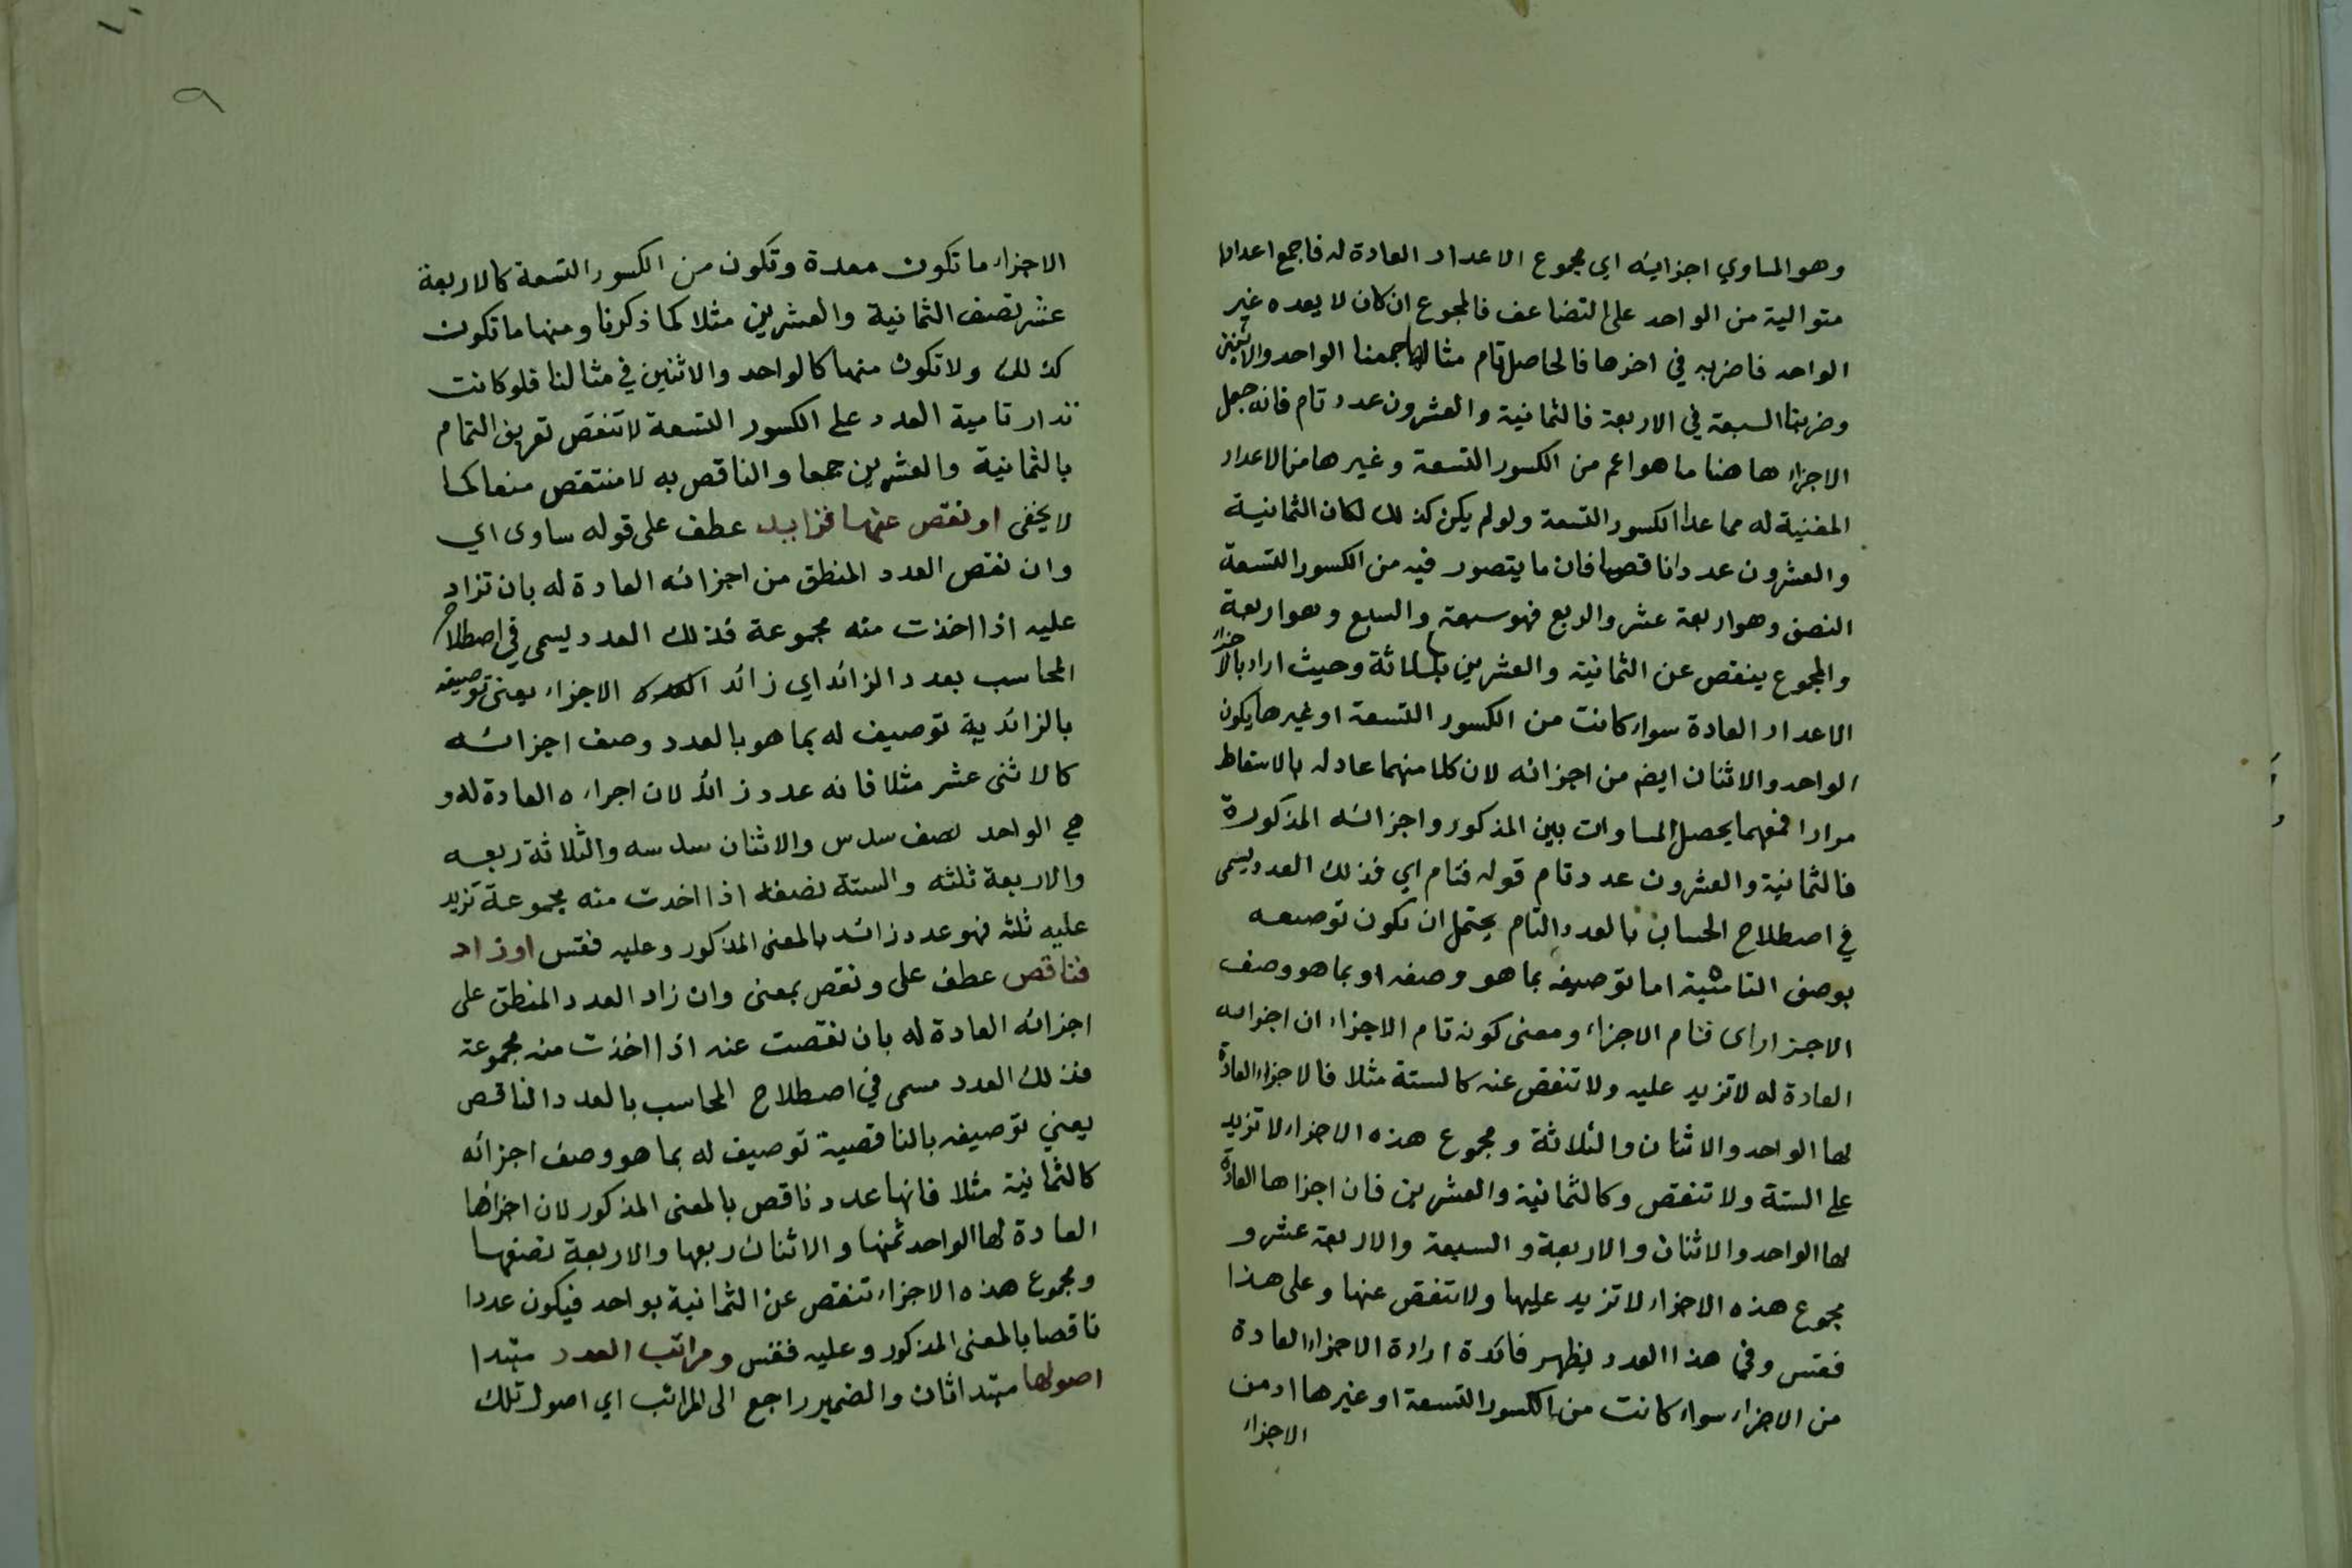 وهو المساوي اجزايئه اي مجموع الاعداد العادة له فاجمع اعدادا
متوالية من الواحد على التضاعف فالمجموع ان كان لا يعده غير
الواحد فاضربه في اخرها فالحاصل تام مثالها جمعنا الواحد والاثنين
وضربنا السبعة في الاربعة فالثمانية والعشرون عدد تام فانه جعل
الاجزاء هاهنا ما هو اعم من الكسور التسعة وغيرها من الاعداد
المفنية له مما عدا الكسور التسعة ولو لم يكن كذلك لكان الثمانية
والعشرون عددا ناقصا فان ما يتصور فيه من الكسور التسعة
النصف وهو اربعة عشر والربع فهو سبعة والسبع وهو اربعة
والمجموع ينقص عن الثمانية والعشرين بثلاثة وحيث اراد بالاجزاء
الاعداد العادة سواء كانت من الكسور التسعة او غيرها يكون
الواحد والاثنان ايضا من اجزائه لان كلا منهما عاد له بالاسقاط
مرارا فمعهما يحصل المساوات بين المذكور واجزائه المذكورة
فالثمانية والعشرون عدد تام قوله فتام اي فذلك العدد يسمى
في اصطلاح الحساب بالعدد التام يحتمل ان تكون توصيفه
بوصف التامية اما توصيفه بما هو وصفه او بما هو وصف
الاجزاء اى فتام الاجزاء ومعنى كونه تام الاجزاء ان اجزائه
العادة له لا تزيد عليه ولا تنقص عنه كالستة مثلا فالاجزاء العادة
لها الواحد والاثنان والثلاثة ومجموع هذه الاجزاء لا تزيد
على الستة ولا تنقص وكالثمانية والعشرين فان اجزاها العادة
لها الواحد والاثنان والاربعة والسبعة والاربعة عشر و
مجموع هذه الاجزاء لا تزيد عليها ولا تنقص عنها وعلى هذا
فقس وفي هذا العدد يظهر فائدة ارادة الاجزاء العادة
من الاجزاء سواء كانت من الكسور التسعة او غيرها اذ من
الاجزاء
٩
الاجزاء ما تكون معدة وتكون من الكسور التسعة كالاربعة
عشر نصف الثمانية والعشرين مثلا كما ذكرنا ومنها ما تكون
كذلك ولا تكون منها كالواحد والاثنين في مثالنا فلو كانت
تدار تامية العدد على الكسور التسعة لا تنقص تعريف التمام
بالثمانية والعشرين جمعا والناقص به لا منتقص منعا كما
لا يخفى او نقص عنها فزايد عطف على قوله ساوى اي
وان نقص العدد المنطق من اجزائه العادة له بان تزاد
عليه اذا اخذت منه مجموعة فذلك العدد يسمى في اصطلاح
المحاسب بعدد الزائد اي زائد الاجزاء يعني توصيفه
بالزائدية توصيف له بما هو بالعدد وصف اجزائه
كالاثنى عشر مثلا فانه عدد زائد لان اجزاءه العادة له و
هي الواحد نصف سدس والاثنان سدسه والثلاثة ربعه
والاربعة ثلثه والستة نصفه اذا اخذت منه مجموعة تزيد
عليه ثلثه فهو عدد زائد بالمعنى المذكور وعليه فقس او زاد
فناقص عطف على ونقص بمعنى وان زاد العدد المنطق على
اجزائه العادة له بان نقصت عنه اذا اخذت منه مجموعة
فذلك العدد مسمى في اصطلاح المحاسب بالعدد الناقص
يعني توصيفه بالناقصية توصيف له بما هو وصف اجزائه
كالثمانية مثلا فانها عدد ناقص بالمعنى المذكور لان اجزاها
العادة لها الواحد ثمنها والاثنان ربعها والاربعة نصفها
ومجموع هذه الاجزاء تنقص عن الثمانية بواحد فيكون عددا
ناقصا بالمعنى المذكور وعليه فقس ومراتب العدد مبتدا
اصولها مبتدا ثان والضمير راجع الى المراتب اي اصول تلك